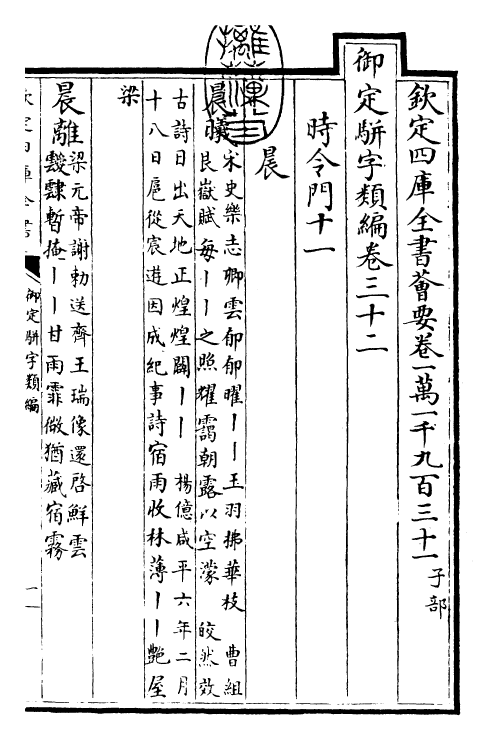 欽定四庫全書薈要卷一萬一千九百三十一子部
御定駢字類編卷三十二
時令門十一
晨
晨曦
宋史樂志卿雲郁郁曜丨丨玉羽拂華枝 曹組
艮嶽賦每丨丨之照耀靄朝露以空濛 皎然效
古詩日出天地正煌煌闢丨丨 楊億咸平六年二月
十八日扈從宸遊因成紀事詩宿雨收林薄丨丨艷屋
梁
晨離
梁元帝謝勅送齊王瑞像還啓鮮雲
靉靆暫掩丨丨甘雨霏微猶藏宿霧
御定駢字類編